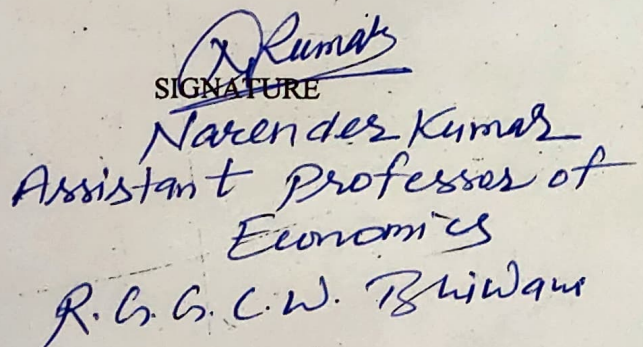 Kumar
SIGNATURE
Narender Kumar
Assistant Professor of
Economics
R.G.G.C.W. Bhiwani